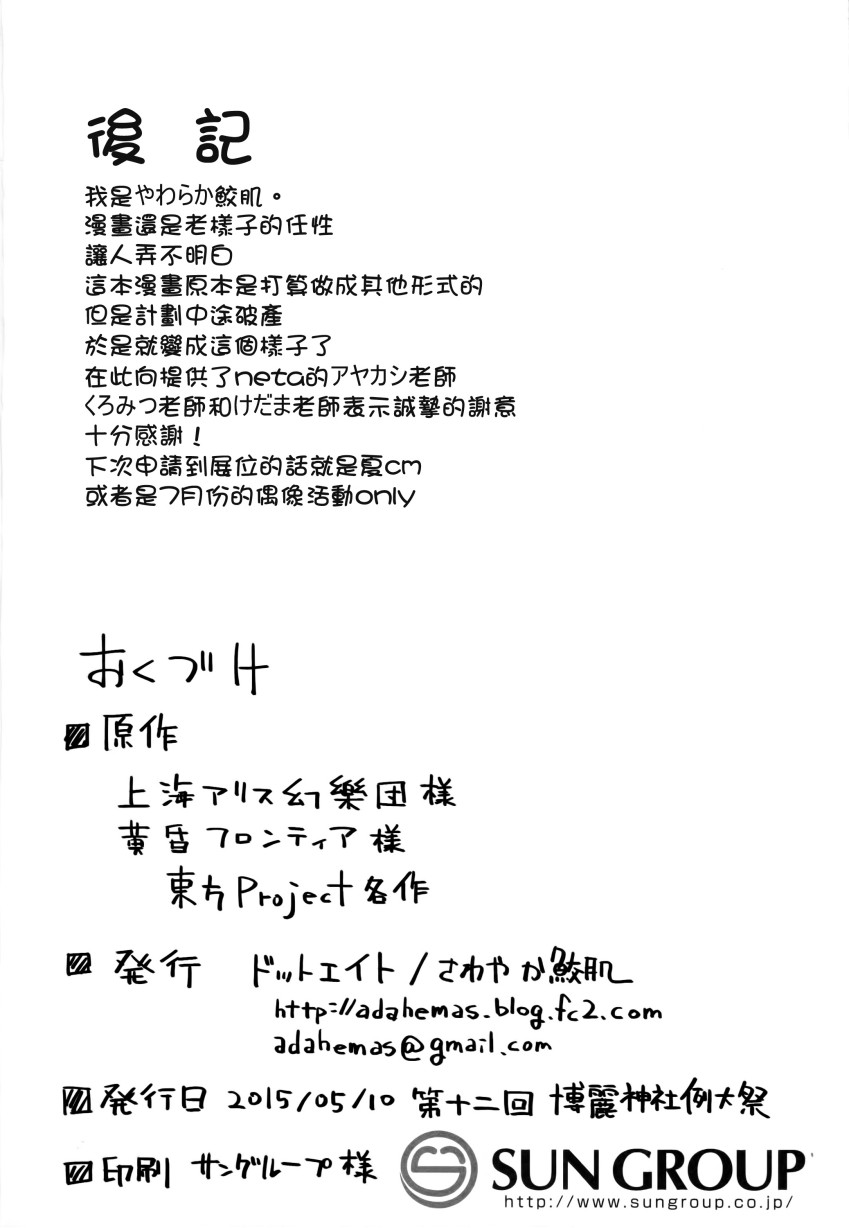 後記
我是やわらか鮫肌。
漫畫還是老樣子的任性
讓人弄不明白
這本漫畫原本是打算做成其他形式的
但是計劃中途破產
於是就變成這個樣子了
在此向提供了neta的アヤカシ老師
くろみつ老師和けだま老師表示誠摯的謝意
十分感謝！
下次申請到展位的話就是夏cm
或者是7月份的偶像活動only
おくづけ
原作
上海アリス幻樂団様
黄昏フロンティア様
東方Project各作
発行 ドットエイト/さわやか鮫肌
http://adahemas.blog.fc2.com
adahemas@gmail.com
発行日 2015/05/10 第十二回 博麗神社例大祭
印刷 サングループ様 SUN GROUP
http://www.sungroup.co.jp/